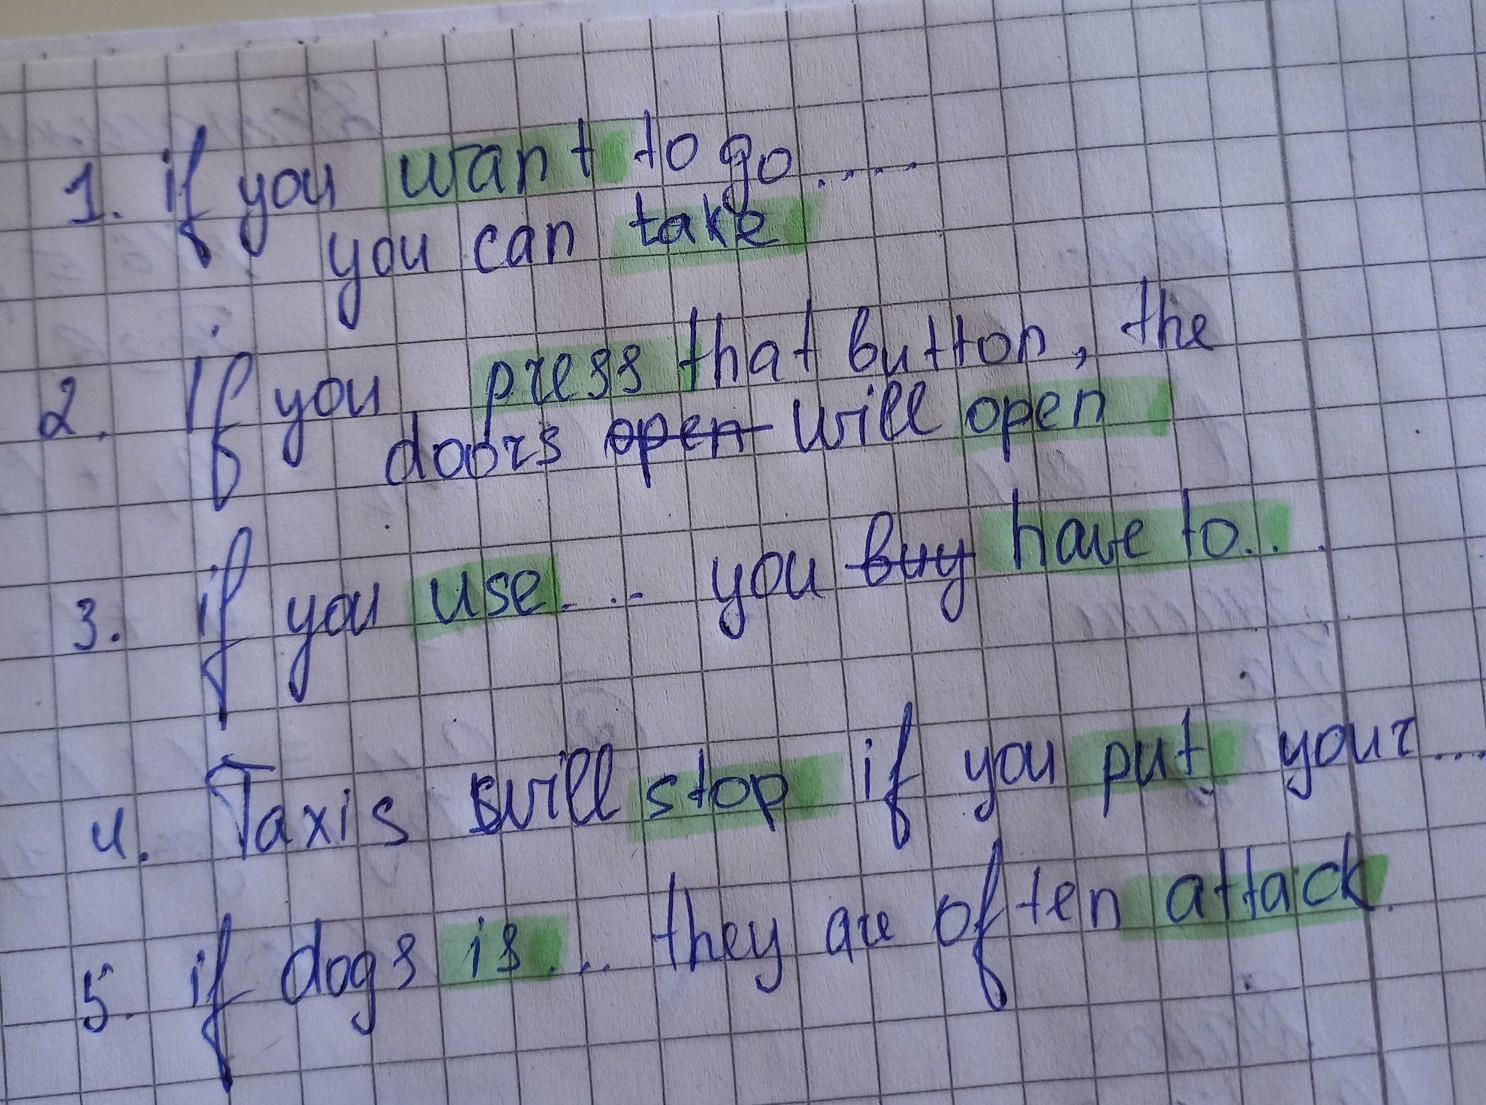 1. if you want to go.....
you can take
2. If you press that button, the
doors open will open
3. if you use.... you buy have to...
4. Taxis will stop if you put your....
5. if dogs is... they are often attack.